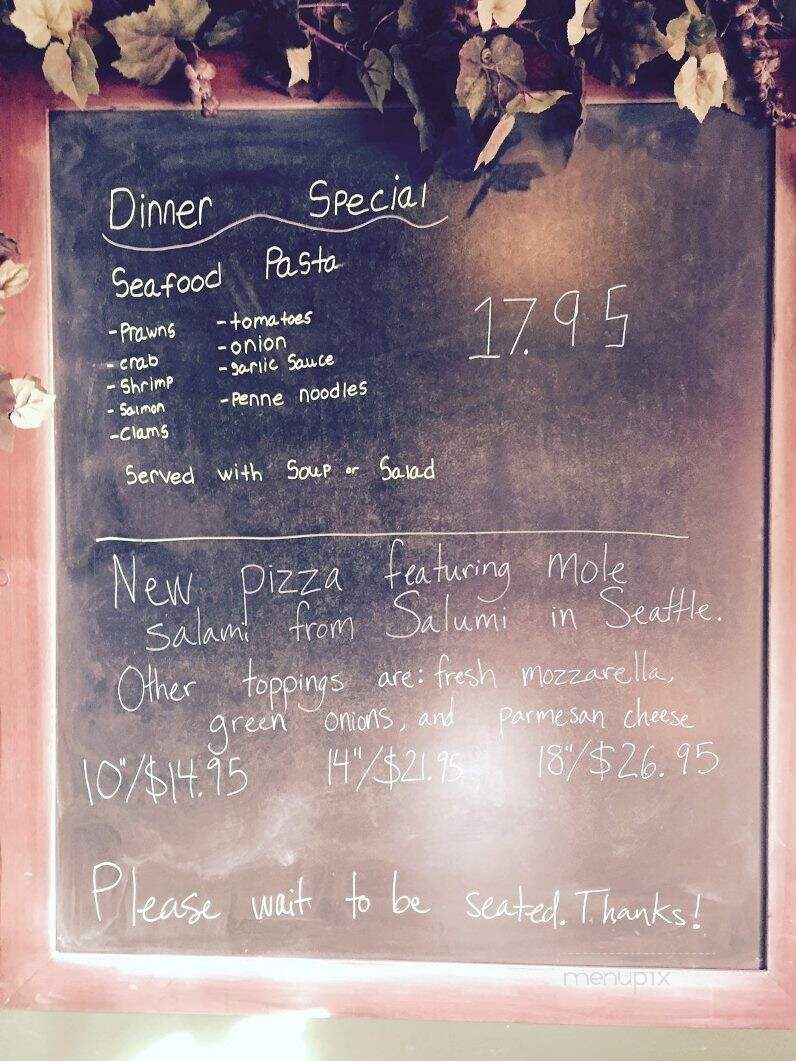 Dinner Special
Seafood Pasta
17.95
-Prawns
-crab
-Shrimp
-Salmon
-Clams
-tomatoes
-onion
-garlic Sauce
-Penne noodles
Served with Soup or Salad
New pizza featuring mole
salami from Salumi in Seattle.
Other toppings are: fresh mozzarella,
green onions, and parmesan cheese
10"/$14.95 14"/$21.95 18"/$26.95
Please wait to be seated. Thanks!
menupix